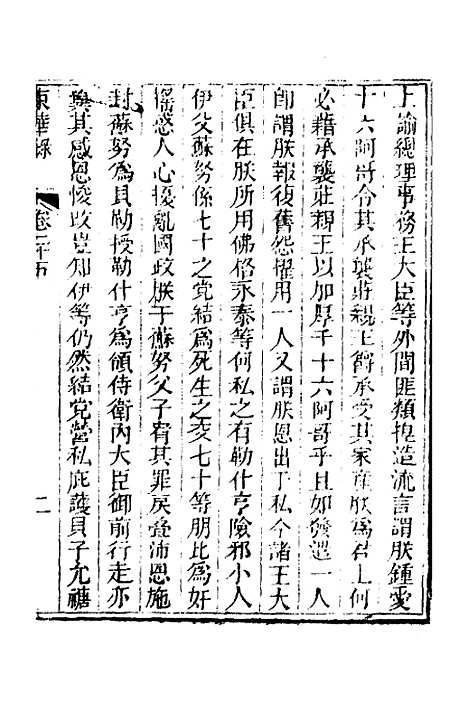 上諭總理事務王大臣等外間匪類揑造流言謂朕鍾愛
十六阿哥令其承襲莊親王爵承受其家產朕爲君上何
必藉承襲莊親王以加厚于十六阿哥乎且如發遣一人
卽謂朕報復舊怨擢用一人又謂朕恩出于私今諸王大
臣俱在朕所用佛格永泰等何私之有勒什亨險邪小人
伊父蘇努係七十之党結爲死生之交七十等朋比爲奸
搖惑人心擾亂國政朕于蘇努父子宥其罪戾叠沛恩施
封蘇努爲貝勒授勒什亨爲領侍衛內大臣御前行走亦
冀其感恩悛改豈知伊等仍然結党營私庇護貝子允禟
東華錄
卷二十五
二